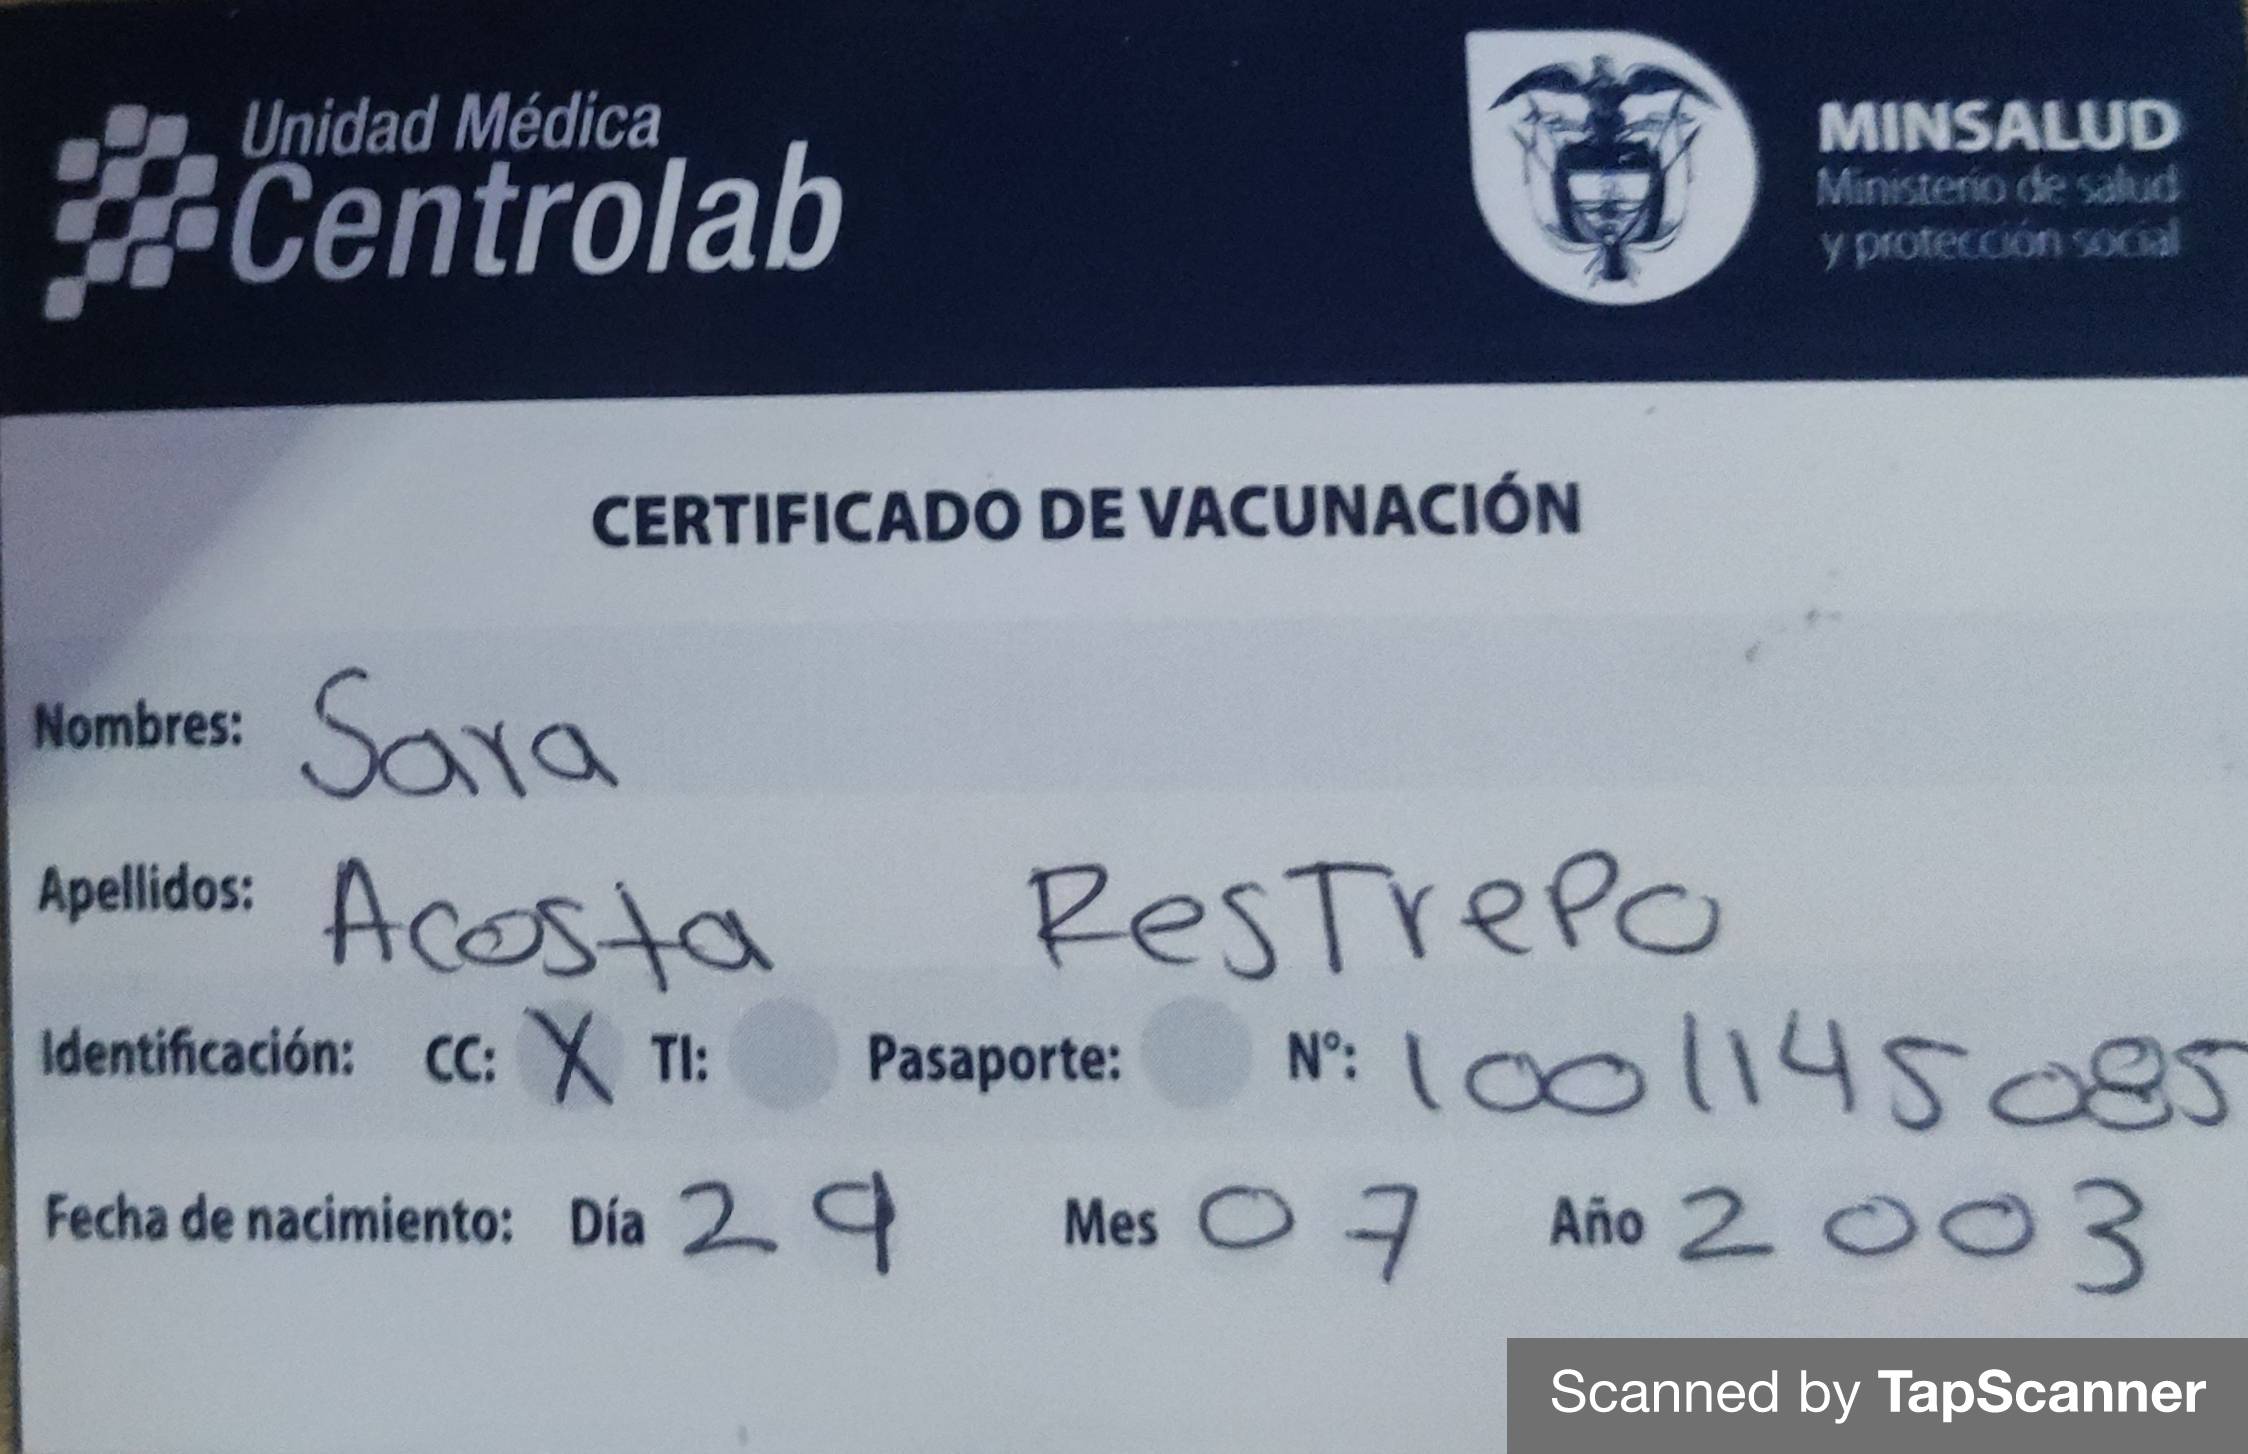 Unidad Médica
Centrolab
MINSALUD
Ministerio de salud
y protección social
CERTIFICADO DE VACUNACIÓN
Nombres: Sara
Apellidos: Acosta ResTrePo
Identificación: CC: X TI: Pasaporte: N°: 1001145085
Fecha de nacimiento: Día 29 Mes 07 Año 2003
Scanned by TapScanner